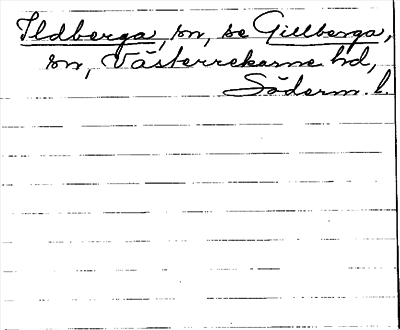 Ildberga, sn, se Gillberga,
sn, Västerrekarne hd,
Söderm. l.